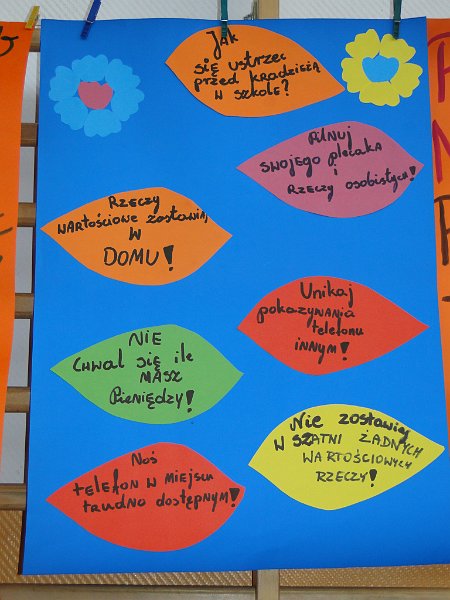 Jak
się ustrzec
przed kradzieżą
w szkole?
Pilnuj
swojego plecaka
i
rzeczy osobistych!
Rzeczy
wartościowe zostawiaj
w
DOMU!
Unikaj
pokazywania
telefonu
innym!
NIE
Chwal się ile
MASZ
Pieniędzy!
Nie zostawiaj
w szatni żadnych
wartościowych
rzeczy!
Noś
telefon w miejscu
trudno dostępnym!